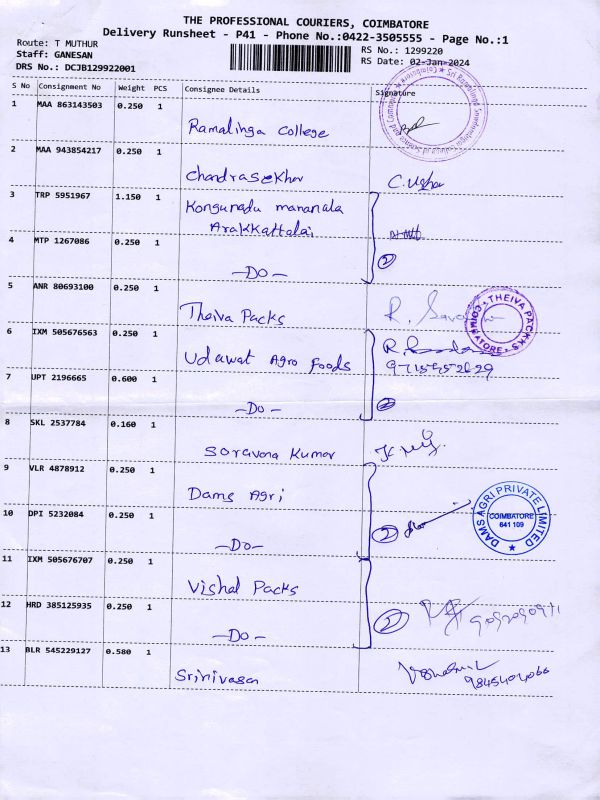 THE PROFESSIONAL COURIERS, COIMBATORE
Delivery Runsheet - P41 - Phone No.:0422-3505555 - Page No.:1
Route: T MUTHUR
RS No.: 1299220
Staff: GANESAN
RS Date: 02-Jan-2024
DRS No.: DCJB129922001
S No Consignment No Weight PCS Consignee Details Signature
1 MAA 863143503 0.250 1
Ramalinga College
2 MAA 943854217 0.250 1
Chandrasekhar C. Usha
3 TRP 5951967 1.150 1 Kongunadu
Arakkattalai
4 MTP 1267086 0.250 1
2
-Do-
5 ANR 80693100 0.250 1
Theiva Packs
THEIVA PACKS COIMBATORE
6 IXM 505676563 0.250 1
Udawat Agro Foods
7 UPT 2196665 0.600 1
-Do- 2
8 SKL 2537784 0.160 1
Saravana Kumar
9 VLR 4878912 0.250 1
Dams Agri
DAMS AGRI PRIVATE LIMITED
COIMBATORE
641 109
10 DPI 5232084 0.250 1
-Do- 2
11 IXM 505676707 0.250 1
Vishal Packs
12 HRD 385125935 0.250 1
-Do- 2
13 BLR 545229127 0.580 1
Srinivasan